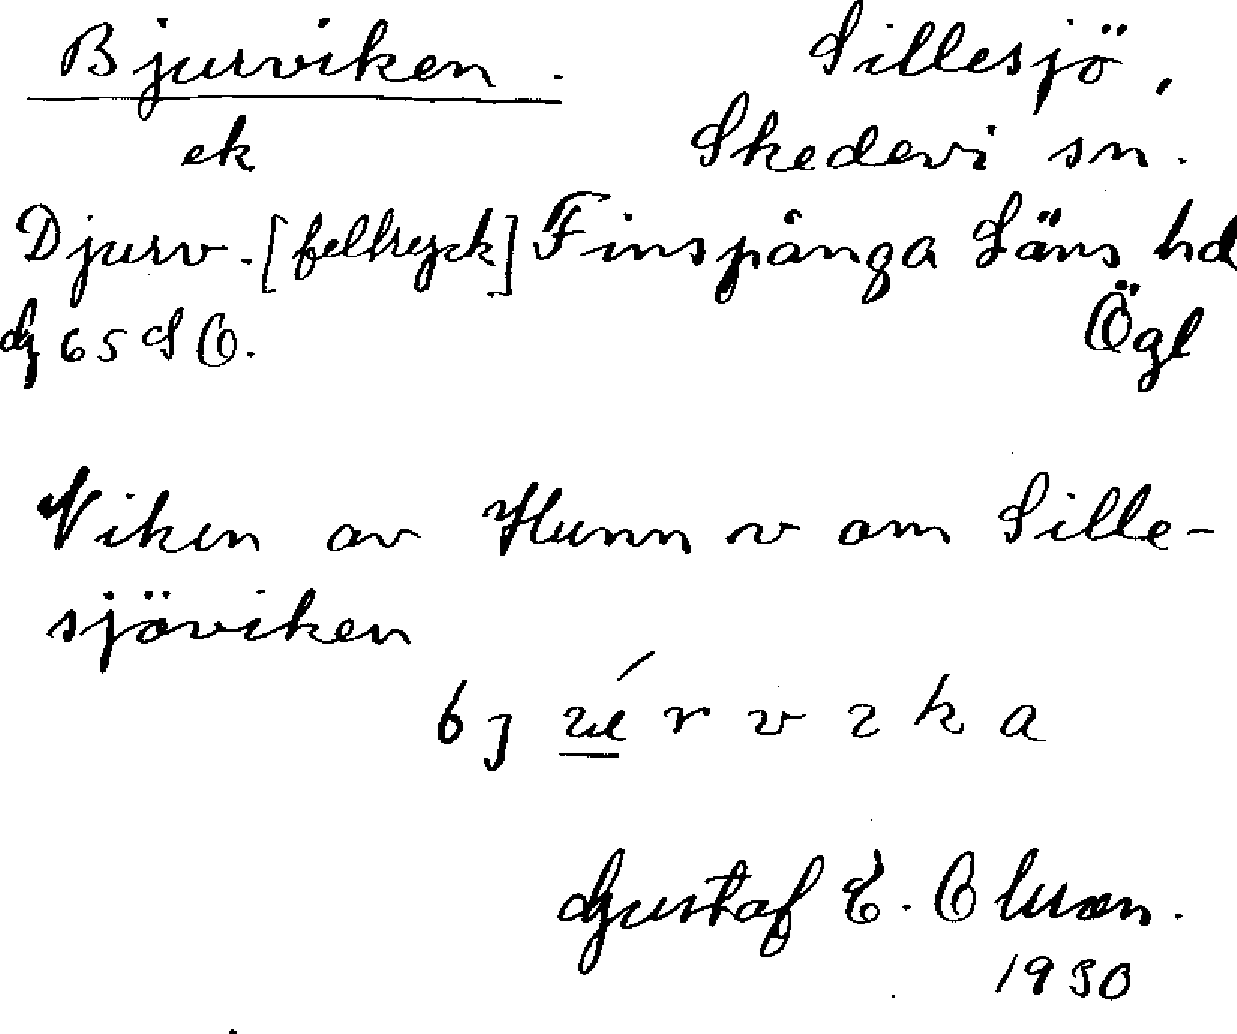 Bjurviken. Sillesjö,
ek Skedevi sn.
Djurv. [feltryck] Finspånga Läns hd
G 65 SO. Ögl
Viken av Hunn v om Sille-
sjöviken
Gustaf E. Olsson.
1930